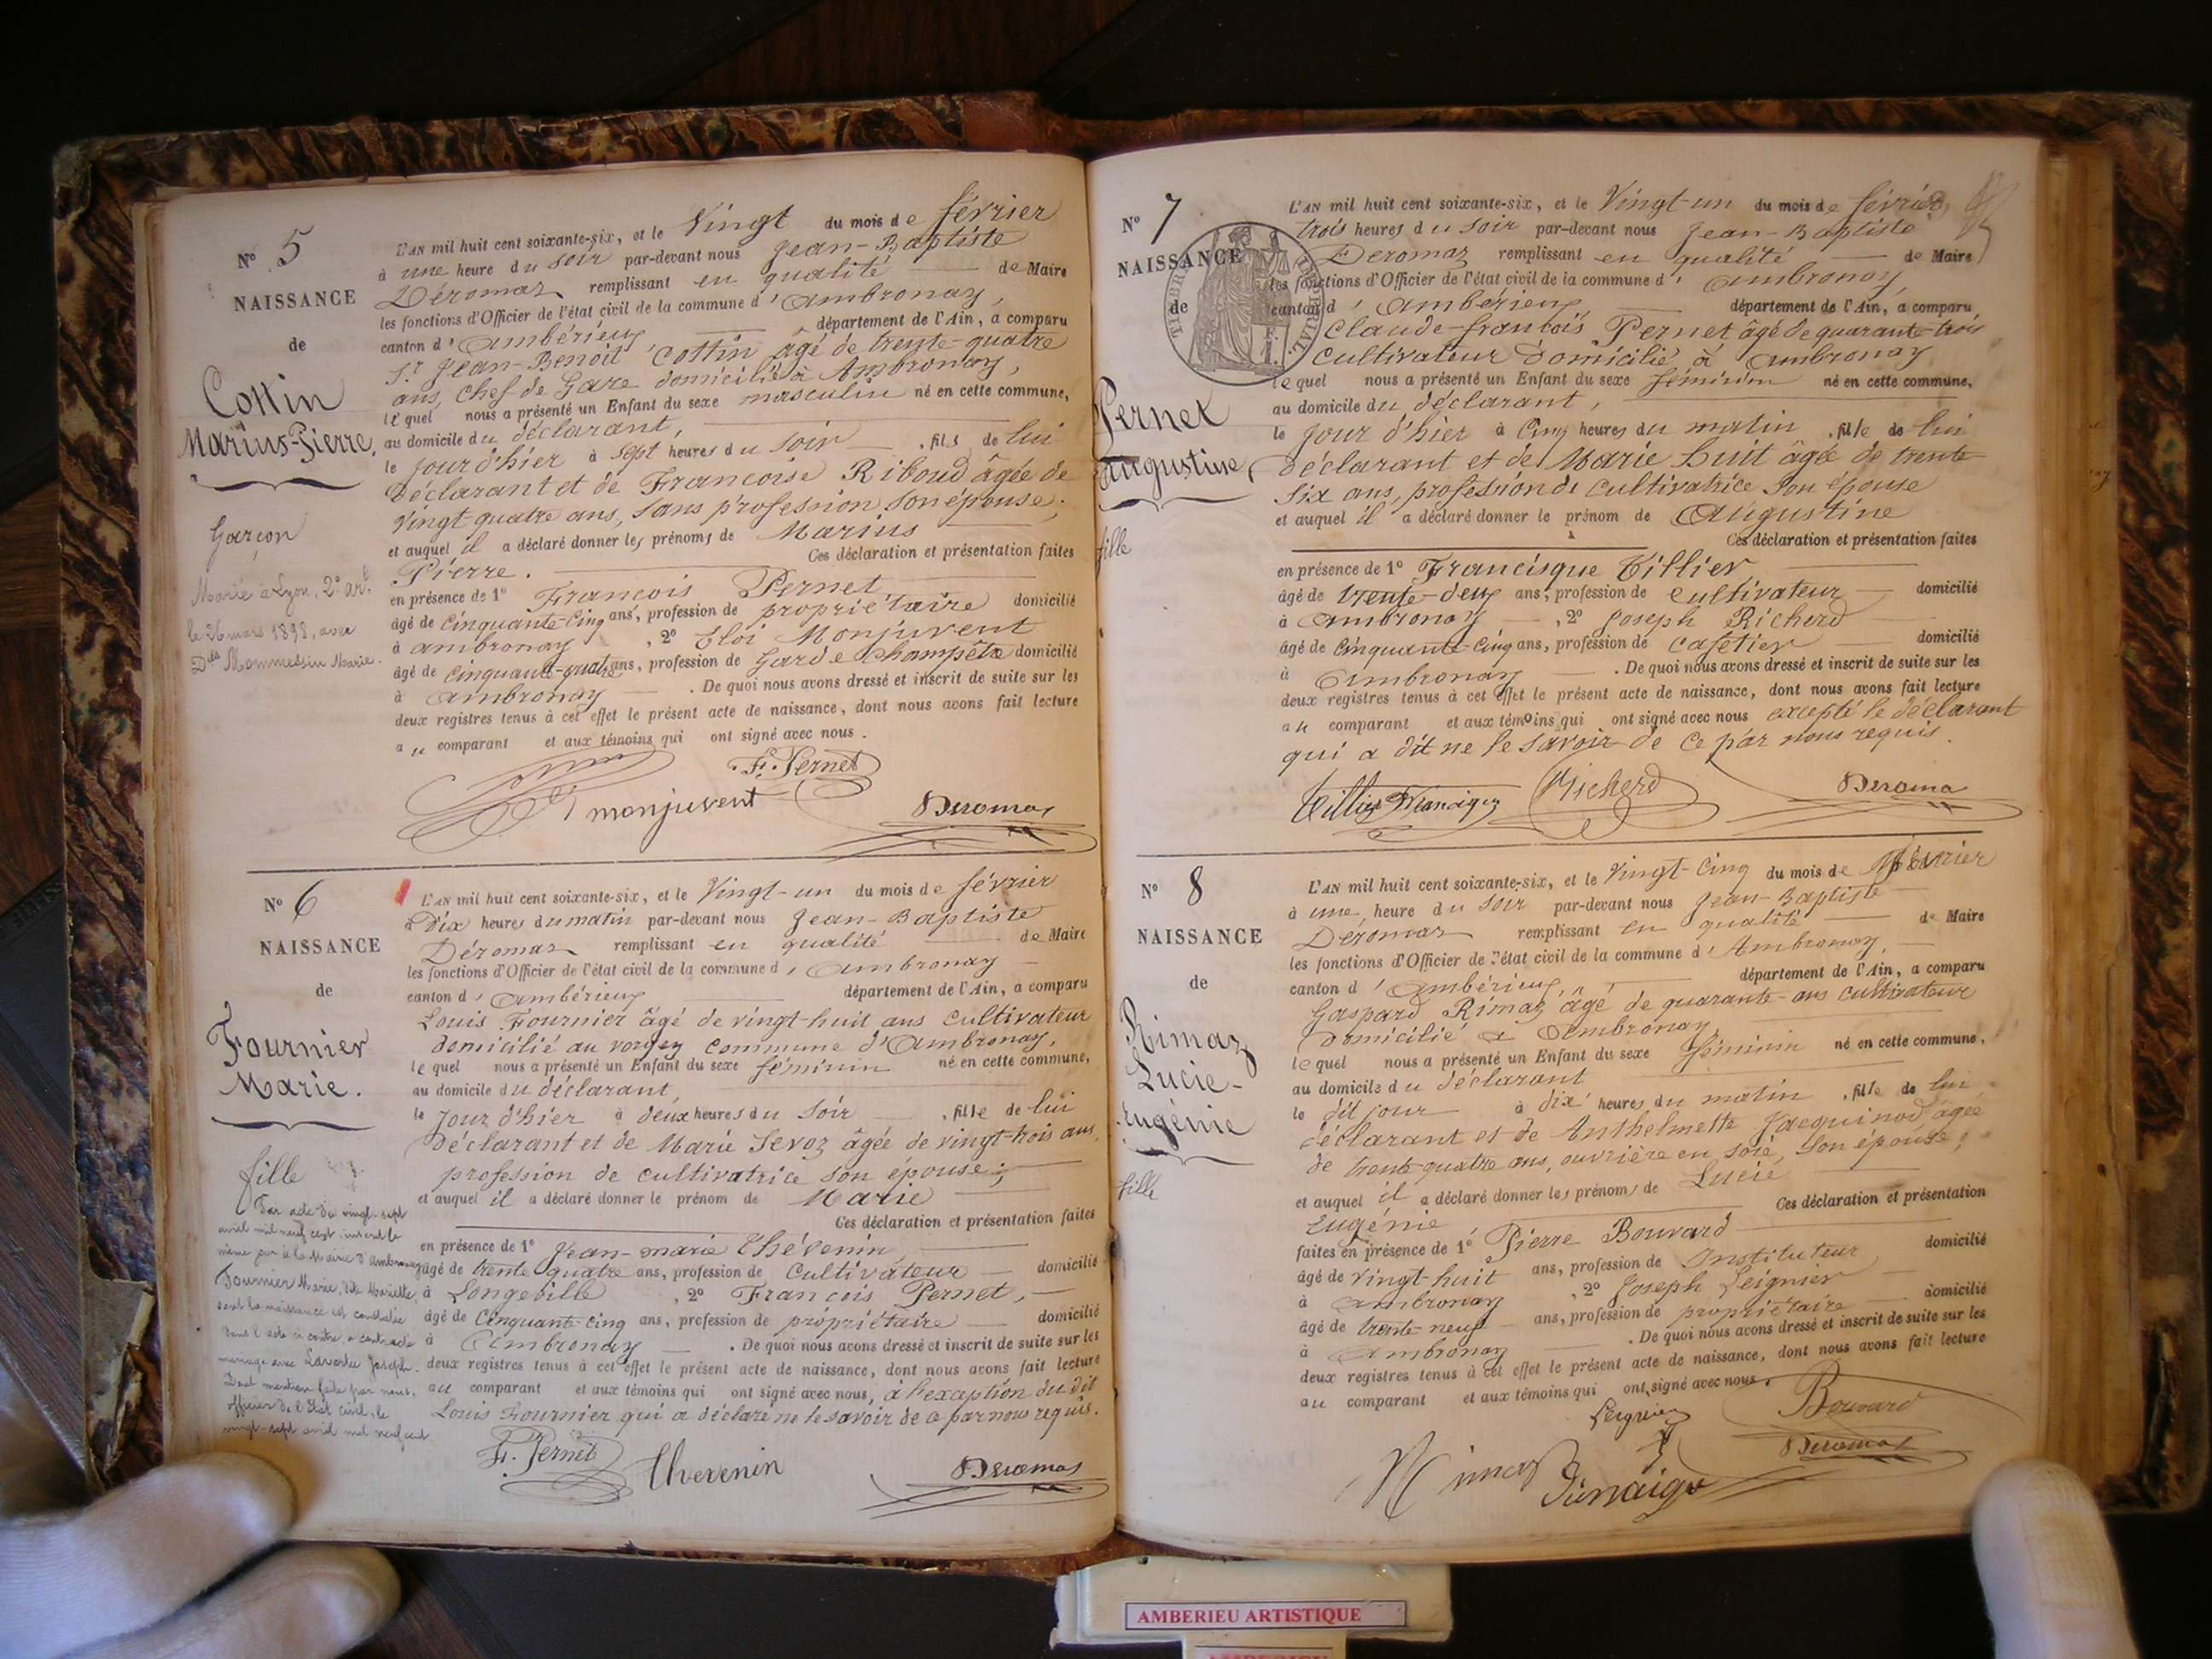 N° 5
NAISSANCE
de
Cottin
Marius-Pierre.
Garçon
Marié à Lyon, 2e arrt
le 26 mars 1898, avec
Dlle Mommessin Marie.
L'AN mil huit cent soixante-six, et le Vingt du mois de février
à une heure du soir par-devant nous Jean-Baptiste
Déromas remplissant en qualité de Maire
les fonctions d'Officier de l'état civil de la commune d'Ambronay,
canton d'Ambérieux département de l'Ain, a comparu
Sr Jean-Benoit Cottin âgé de trente-quatre
ans, chef de Gare domicilié à Ambronay,
lequel nous a présenté un Enfant du sexe masculin né en cette commune,
au domicile du déclarant,
le jour d'hier à sept heures du soir, fils de lui
Déclarant et de Francoise Riboud âgée de
vingt quatre ans, sans profession son épouse;
et auquel il a déclaré donner les prénoms de Marius
Pierre. Ces déclaration et présentation faites
en présence de 1° Francois Pernet
âgé de cinquante-cinq ans, profession de propriétaire domicilié
à ambronay, 2° Eloi Monjuvent
âgé de cinquante-quatre ans, profession de Garde champêtre domicilié
à ambronay. De quoi nous avons dressé et inscrit de suite sur les
deux registres tenus à cet effet le présent acte de naissance, dont nous avons fait lecture
au comparant et aux témoins qui ont signé avec nous.
F. Pernet
monjuvent
Deromas
N° 6
NAISSANCE
de
Fournier
Marie.
fille
Par acte du vingt-sept
avril mil neuf cent inscrit le
même jour à la Mairie d'Ambronay
Fournier Marie, dite Mariette,
dont la naissance est constatée
dans l'acte ci contre, a contracté
mariage avec Joseph.
Dont mention faite par nous,
officier de l'Etat civil, le
vingt-sept avril mil neuf cent.
L'AN mil huit cent soixante-six, et le Vingt-un du mois de février
à Dix heures du matin par-devant nous Jean-Baptiste
Déromas remplissant en qualité de Maire
les fonctions d'Officier de l'état civil de la commune d'Ambronay
canton d'Ambérieux département de l'Ain, a comparu
Louis Fournier âgé de vingt-huit ans cultivateur
domicilié au vorgey commune d'Ambronay,
lequel nous a présenté un Enfant du sexe féminin né en cette commune,
au domicile du déclarant,
le jour d'hier à deux heures du soir, fille de lui
Déclarant et de Marie Sevoz âgée de vingt-trois ans,
profession de cultivatrice son épouse;
et auquel il a déclaré donner le prénom de Marie
Ces déclaration et présentation faites
en présence de 1° Jean-marie Thévenin,
âgé de trente quatre ans, profession de Cultivateur domicilié
à Longeville, 2° Francois Pernet,
âgé de Cinquante cinq ans, profession de propriétaire domicilié
à Ambronay. De quoi nous avons dressé et inscrit de suite sur les
deux registres tenus à cet effet le présent acte de naissance, dont nous avons fait lecture
au comparant et aux témoins qui ont signé avec nous, à l'exception du dit
Louis Fournier qui a déclaré ne le savoir de ce par nous requis.
F. Pernet
Thevenin
Deromas
N° 7
NAISSANCE
de
Pernet
Augustine,
fille
TIMBRE IMPÉRIAL
L'AN mil huit cent soixante-six, et le Vingt-un du mois de février
trois heures du soir par-devant nous Jean-Baptiste
Deromaz remplissant en qualité de Maire
les fonctions d'Officier de l'état civil de la commune d'Ambronay,
canton d'Ambérieux département de l'Ain, a comparu
Claude-francois Pernet âgé de quarante-trois
cultivateur domicilié à Ambronay
lequel nous a présenté un Enfant du sexe féminin né en cette commune,
au domicile du déclarant,
le jour d'hier à Cinq heures du matin, fille de lui
Déclarant et de Marie Huit âgée de trente
six ans, profession de cultivatrice son épouse
et auquel il a déclaré donner le prénom de Augustine
Ces déclaration et présentation faites
en présence de 1° Francisque Tillier
âgé de trente-deux ans, profession de cultivateur domicilié
à Ambronay, 2° Joseph Richerd
âgé de Cinquante-cinq ans, profession de cafetier domicilié
à Ambronay. De quoi nous avons dressé et inscrit de suite sur les
deux registres tenus à cet effet le présent acte de naissance, dont nous avons fait lecture
au comparant et aux témoins qui ont signé avec nous excepté le déclarant
qui a dit ne le savoir de ce par nous requis.
Richerd
Deroma
N° 8
NAISSANCE
de
Rimaz
Lucie-
Eugénie
fille
L'AN mil huit cent soixante-six, et le Vingt-Cinq du mois de février
à une heure du soir par-devant nous Jean-Baptiste
Deromas remplissant en qualité de Maire
les fonctions d'Officier de l'état civil de la commune d'Ambronay,
canton d'Ambérieux, département de l'Ain, a comparu
Gaspard Rimaz, âgé de quarante-ans cultivateur
domicilié à Ambronay,
lequel nous a présenté un Enfant du sexe féminin né en cette commune,
au domicile du déclarant
le dit jour à dix heures du matin, fille de lui
déclarant et de Anthelmette Jacquinod âgée
de trente-quatre ans, ouvrière en soie, son épouse;
et auquel il a déclaré donner les prénoms de Lucie
Eugénie Ces déclaration et présentation
faites en présence de 1° Pierre Bouvard
âgé de vingt-huit ans, profession de Instituteur domicilié
à Ambronay, 2° Joseph Leignier
âgé de trente neuf ans, profession de propriétaire domicilié
à Ambronay. De quoi nous avons dressé et inscrit de suite sur les
deux registres tenus à cet effet le présent acte de naissance, dont nous avons fait lecture
au comparant et aux témoins qui ont signé avec nous.
Leignier
Bouvard
Rimaz
Deromas
AMBERIEU ARTISTIQUE